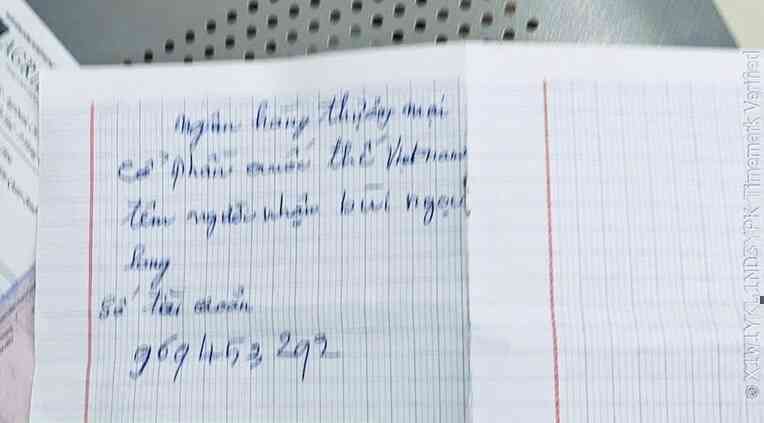 AGRI
ngân hàng thương mại
cổ phần quốc tế Việt nam
tên người nhận bùi ngọc
lang
số tài quản
969453292
© X1M1YKL1NDSYPK Timemark Verified